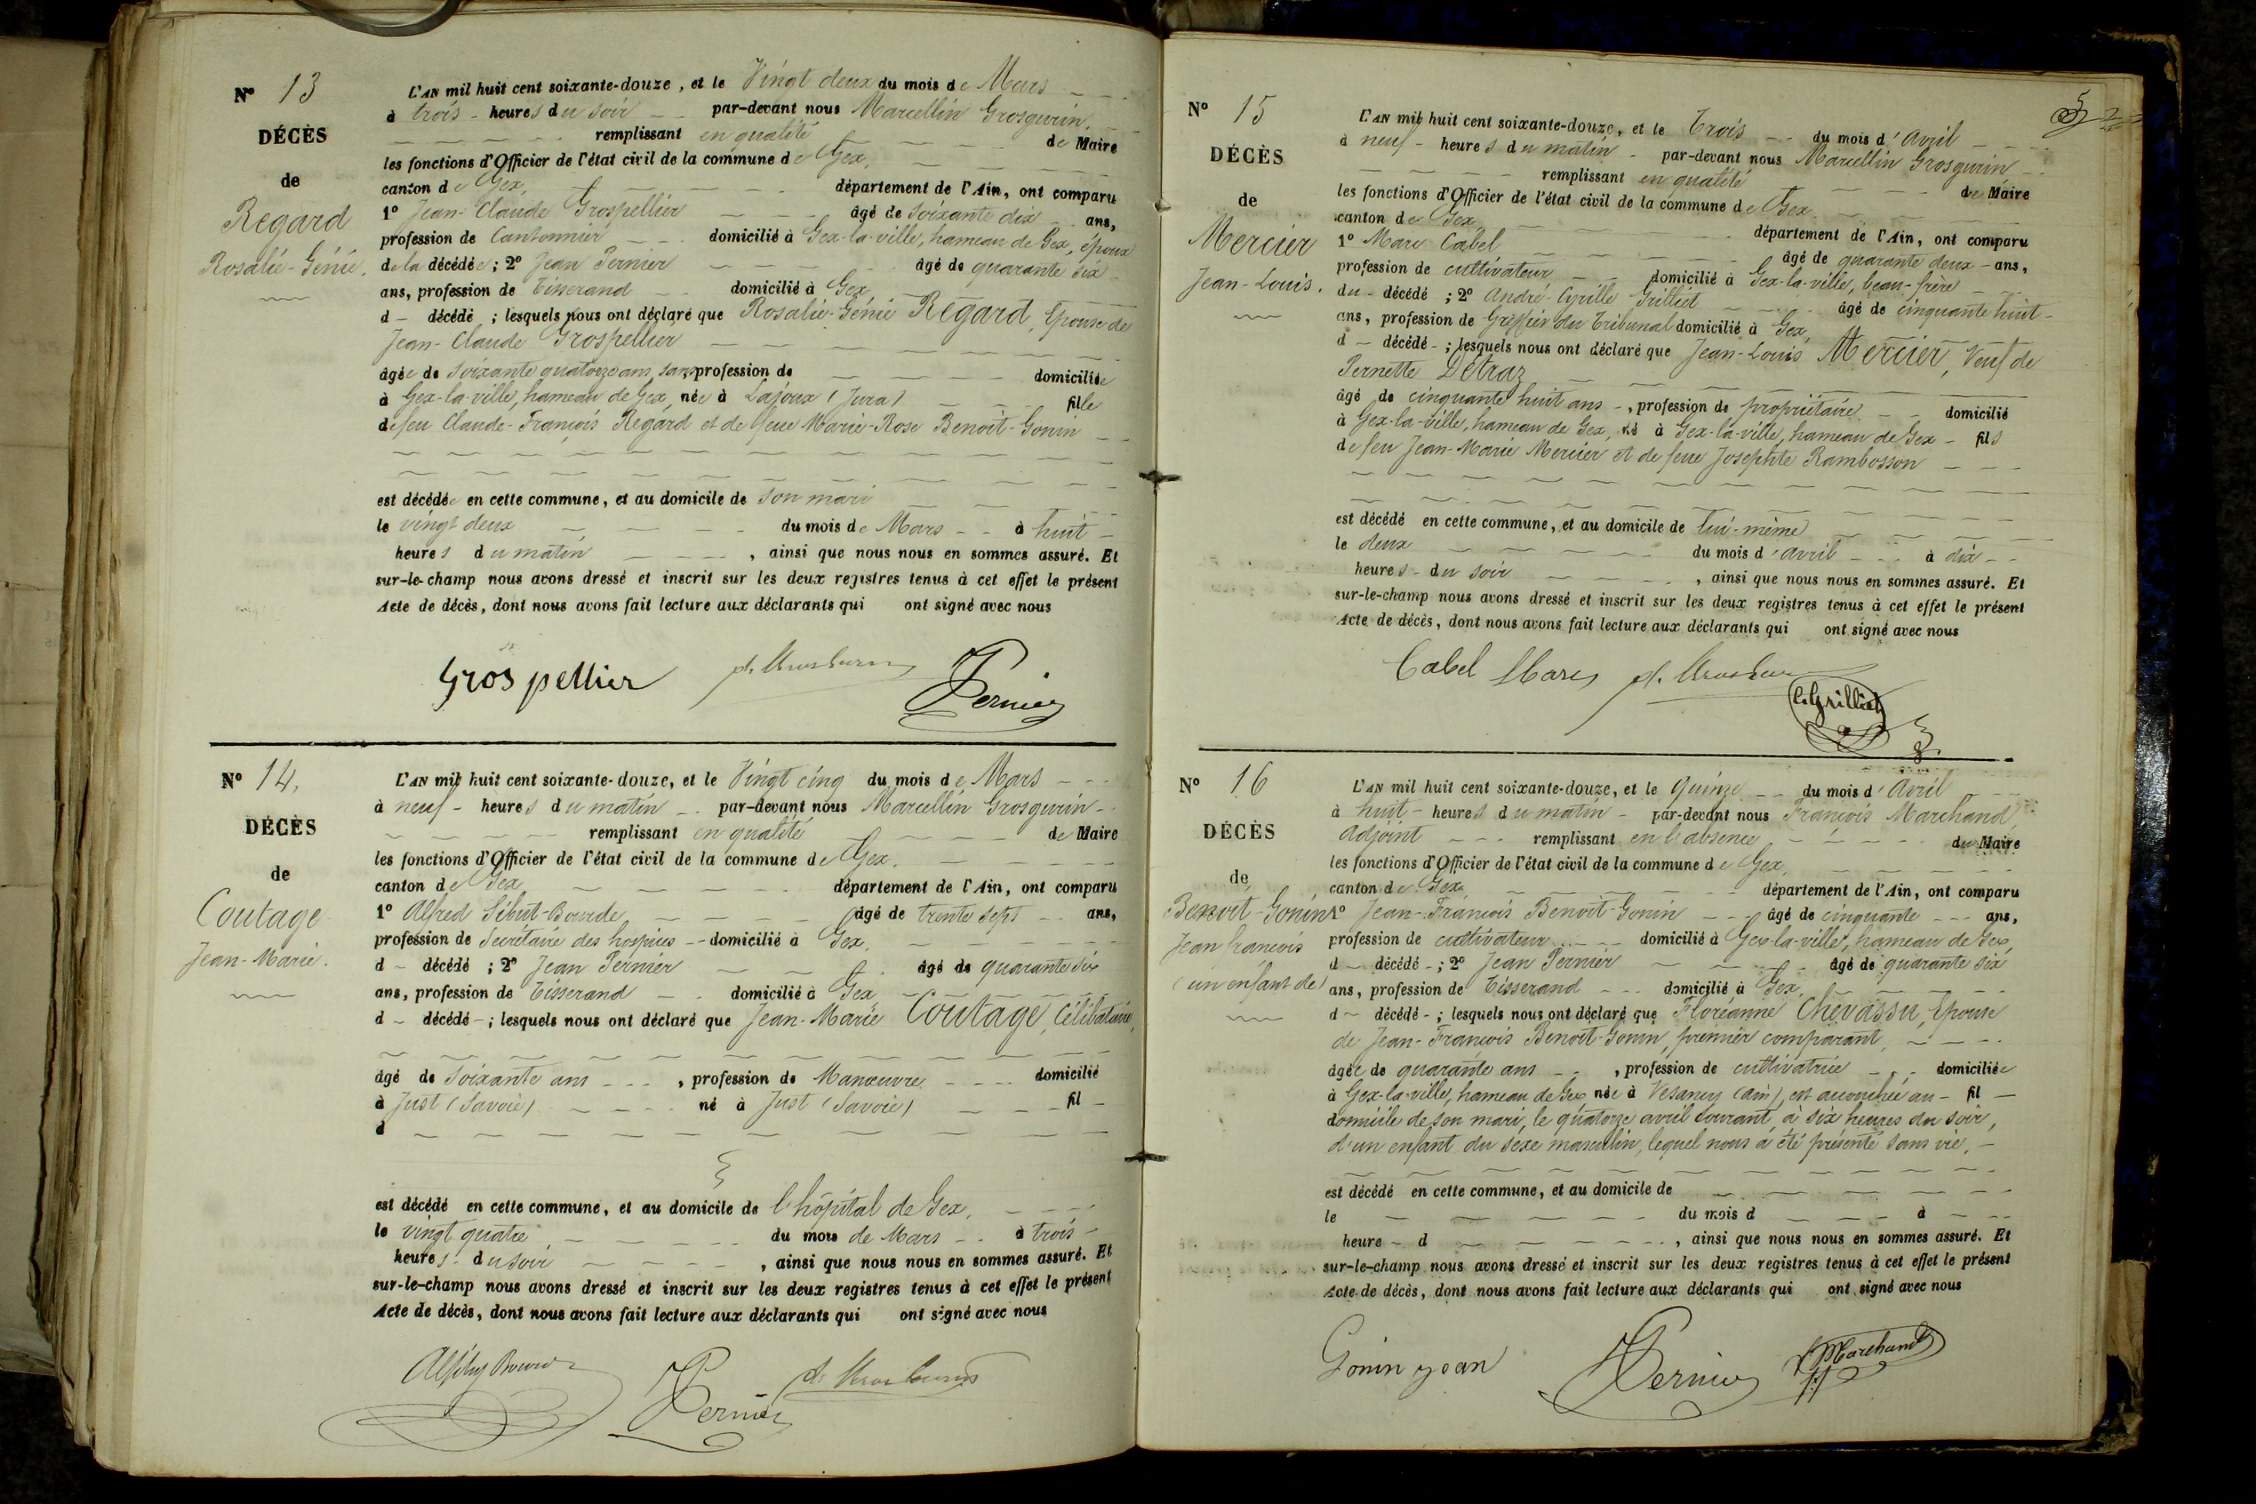 Nº 13
DÉCÈS
de
Regard
Rosalie-Génie.
L'AN mil huit cent soixante-douze, et le Vingt deux du mois de Mars
à trois heures du soir par-devant nous Marcellin Grosgurin,
remplissant en qualité de Maire
les fonctions d'Officier de l'état civil de la commune de Gex,
canton de Gex, département de l'Ain, ont comparu
1º Jean-Claude Grospellier âgé de soixante dix ans,
profession de Cantonnier domicilié à Gex-la-ville, hameau de Gex, époux
de la décédée ; 2º Jean Pernier âgé de quarante six
ans, profession de Tisserand domicilié à Gex
d décédé ; lesquels nous ont déclaré que Rosalie-Génie Regard, Epouse de
Jean-Claude Grospellier
âgée de soixante quatorze ans, sans profession de domiciliée
à Gex-la-ville, hameau de Gex, née à Lajoux (Jura) fille
de feu Claude-François Regard et de feue Marie-Rose Benoit-Gonin
est décédée en cette commune, et au domicile de son mari
le vingt deux du mois de Mars à huit
heures du matin , ainsi que nous nous en sommes assuré. Et
sur-le-champ nous avons dressé et inscrit sur les deux registres tenus à cet effet le présent
Acte de décès, dont nous avons fait lecture aux déclarants qui ont signé avec nous
Grospellier Pernier
Nº 14.
DÉCÈS
de
Coutage
Jean-Marie.
L'AN mil huit cent soixante-douze, et le Vingt cinq du mois de Mars
à neuf heures du matin par-devant nous Marcellin Grosgurin
remplissant en qualité de Maire
les fonctions d'Officier de l'état civil de la commune de Gex.
canton de Gex département de l'Ain, ont comparu
1º Alfred Sibut-Bourde âgé de trente sept ans,
profession de Secrétaire des hospices domicilié à Gex.
d décédé ; 2º Jean Pernier âgé de quarante six
ans, profession de Tisserand domicilié à Gex
d décédé ; lesquels nous ont déclaré que Jean-Marie Coutage, Célibataire,
âgé de soixante ans , profession de Manœuvre domicilié
à Just (Savoie) né à Just (Savoie) fil
d
est décédé en cette commune, et au domicile de l'hôpital de Gex,
le vingt quatre du mois de Mars à trois
heures du soir , ainsi que nous nous en sommes assuré. Et
sur-le-champ nous avons dressé et inscrit sur les deux registres tenus à cet effet le présent
Acte de décès, dont nous avons fait lecture aux déclarants qui ont signé avec nous
Pernier
5
Nº 15
DÉCÈS
de
Mercier
Jean-Louis.
L'AN mil huit cent soixante-douze, et le Trois du mois d'Avril
à neuf heures du matin par-devant nous Marcellin Grosgurin
remplissant en qualité de Maire
les fonctions d'Officier de l'état civil de la commune de Gex
canton de Gex département de l'Ain, ont comparu
1º Marc Cabel âgé de quarante deux ans,
profession de cultivateur domicilié à Gex-la-ville, beau-frère
du décédé ; 2º André-Cyrille Grilliet âgé de cinquante huit
ans, profession de Greffier du Tribunal domicilié à Gex,
d décédé ; lesquels nous ont déclaré que Jean-Louis Mercier, Veuf de
Pernette Détraz
âgé de cinquante huit ans , profession de propriétaire domicilié
à Gex-la-ville, hameau de Gex, né à Gex-la-ville, hameau de Gex fils
de feu Jean-Marie Mercier et de feue Josephte Rambosson
est décédé en cette commune, et au domicile de lui-même
le deux du mois d'avril à dix
heures du soir , ainsi que nous nous en sommes assuré. Et
sur-le-champ nous avons dressé et inscrit sur les deux registres tenus à cet effet le présent
Acte de décès, dont nous avons fait lecture aux déclarants qui ont signé avec nous
Cabel Marc C. Grilliet
Nº 16
DÉCÈS
de
Benoit-Gonin
Jean françois
(un enfant de)
L'AN mil huit cent soixante-douze, et le Quinze du mois d'Avril
à huit heures du matin par-devant nous François Marchand
Adjoint remplissant en l'absence du Maire
les fonctions d'Officier de l'état civil de la commune de Gex,
canton de Gex département de l'Ain, ont comparu
1º Jean-François Benoit-Gonin âgé de cinquante ans,
profession de cultivateur domicilié à Gex-la-ville, hameau de Gex,
d décédé ; 2º Jean Pernier âgé de quarante six
ans, profession de Tisserand domicilié à Gex,
d décédé ; lesquels nous ont déclaré que Floréanne Chevassu, Epouse
de Jean-François Benoit-Gonin, premier comparant,
âgée de quarante ans , profession de cultivatrice domiciliée
à Gex-la-ville, hameau de Gex née à Vesancy (ain), est accouchée au fil
domicile de son mari, le quatorze avril courant, à six heures du soir,
d'un enfant du sexe masculin, lequel nous a été présenté sans vie,
est décédé en cette commune, et au domicile de
le du mois d à
heure d , ainsi que nous nous en sommes assuré. Et
sur-le-champ nous avons dressé et inscrit sur les deux registres tenus à cet effet le présent
Acte de décès, dont nous avons fait lecture aux déclarants qui ont signé avec nous
Gonin jean Pernier Marchand